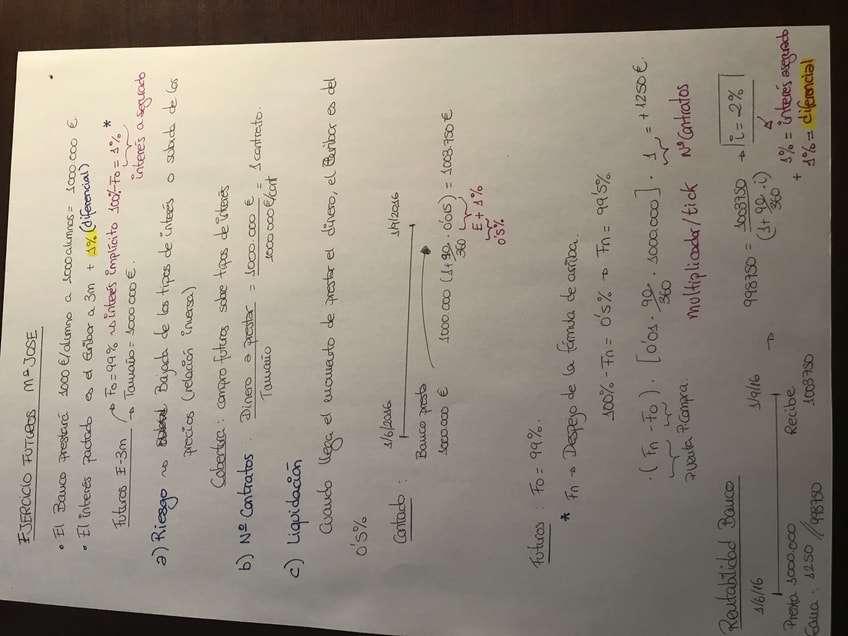 EJERCICIO FUTUROS Mª JOSE
• El Banco prestará 1000 €/alumno a 1000 alumnos = 1000 000 €
• El interés pactado es el Euribor a 3m + 1% (diferencial)
Futuros E-3m → Fo = 99% → interés implícito 100% - Fo = 1% *
→ Tamaño = 1000 000 €.
interés asegurado
a) Riesgo → Bajada de los tipos de interés o subida de los
precios (relación inversa)
Cobertura: compro futuros sobre tipos de interés
b) Nº Contratos: Dinero a prestar / Tamaño = 1000.000 € / 1000.000 €/cont = 1 contrato.
c) Liquidación
Cuando llega el momento de prestar el dinero, el Euribor es del
0'5%
Contado:
1/6/2016 1/9/2016
Banco presta
1000.000 € 1000.000 (1 + 90/360 · 0'015) = 1003.750 €
E + 1%
0'5%
Futuros: Fo = 99%.
* Fn → Despejo de la fórmula de arriba.
100% - Fn = 0'5% → Fn = 99'5%
· (Fn - Fo) · [0'01 · 90/360 · 1000.000] · 1 = + 1250 €.
P.Venta P.Compra. multiplicador/tick Nº Contratos
Rentabilidad Banco
1/6/16 1/9/16
Presta 1000.000 Recibe
Gana: 1250 // 998750 1003750
→ 998750 = 1003750 / (1 + 90/360 · i) → i = 2%
1% = interés asegurado
+ 1% = diferencial